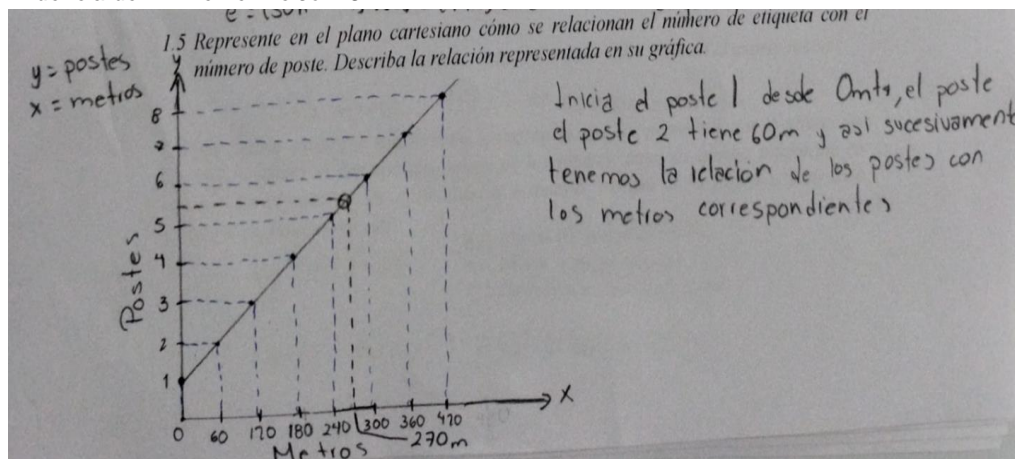 1.5 Represente en el plano cartesiano cómo se relacionan el número de etiqueta con el
número de poste. Describa la relación representada en su gráfica.
y = postes
x = metros
y
8
7
6
5
4
3
2
1
Postes
0 60 120 180 240 300 360 420
X
270m
Metros
Inicia el poste 1 desde 0mts, el poste
el poste 2 tiene 60m y así sucesivament
tenemos la relación de los postes con
los metros correspondientes